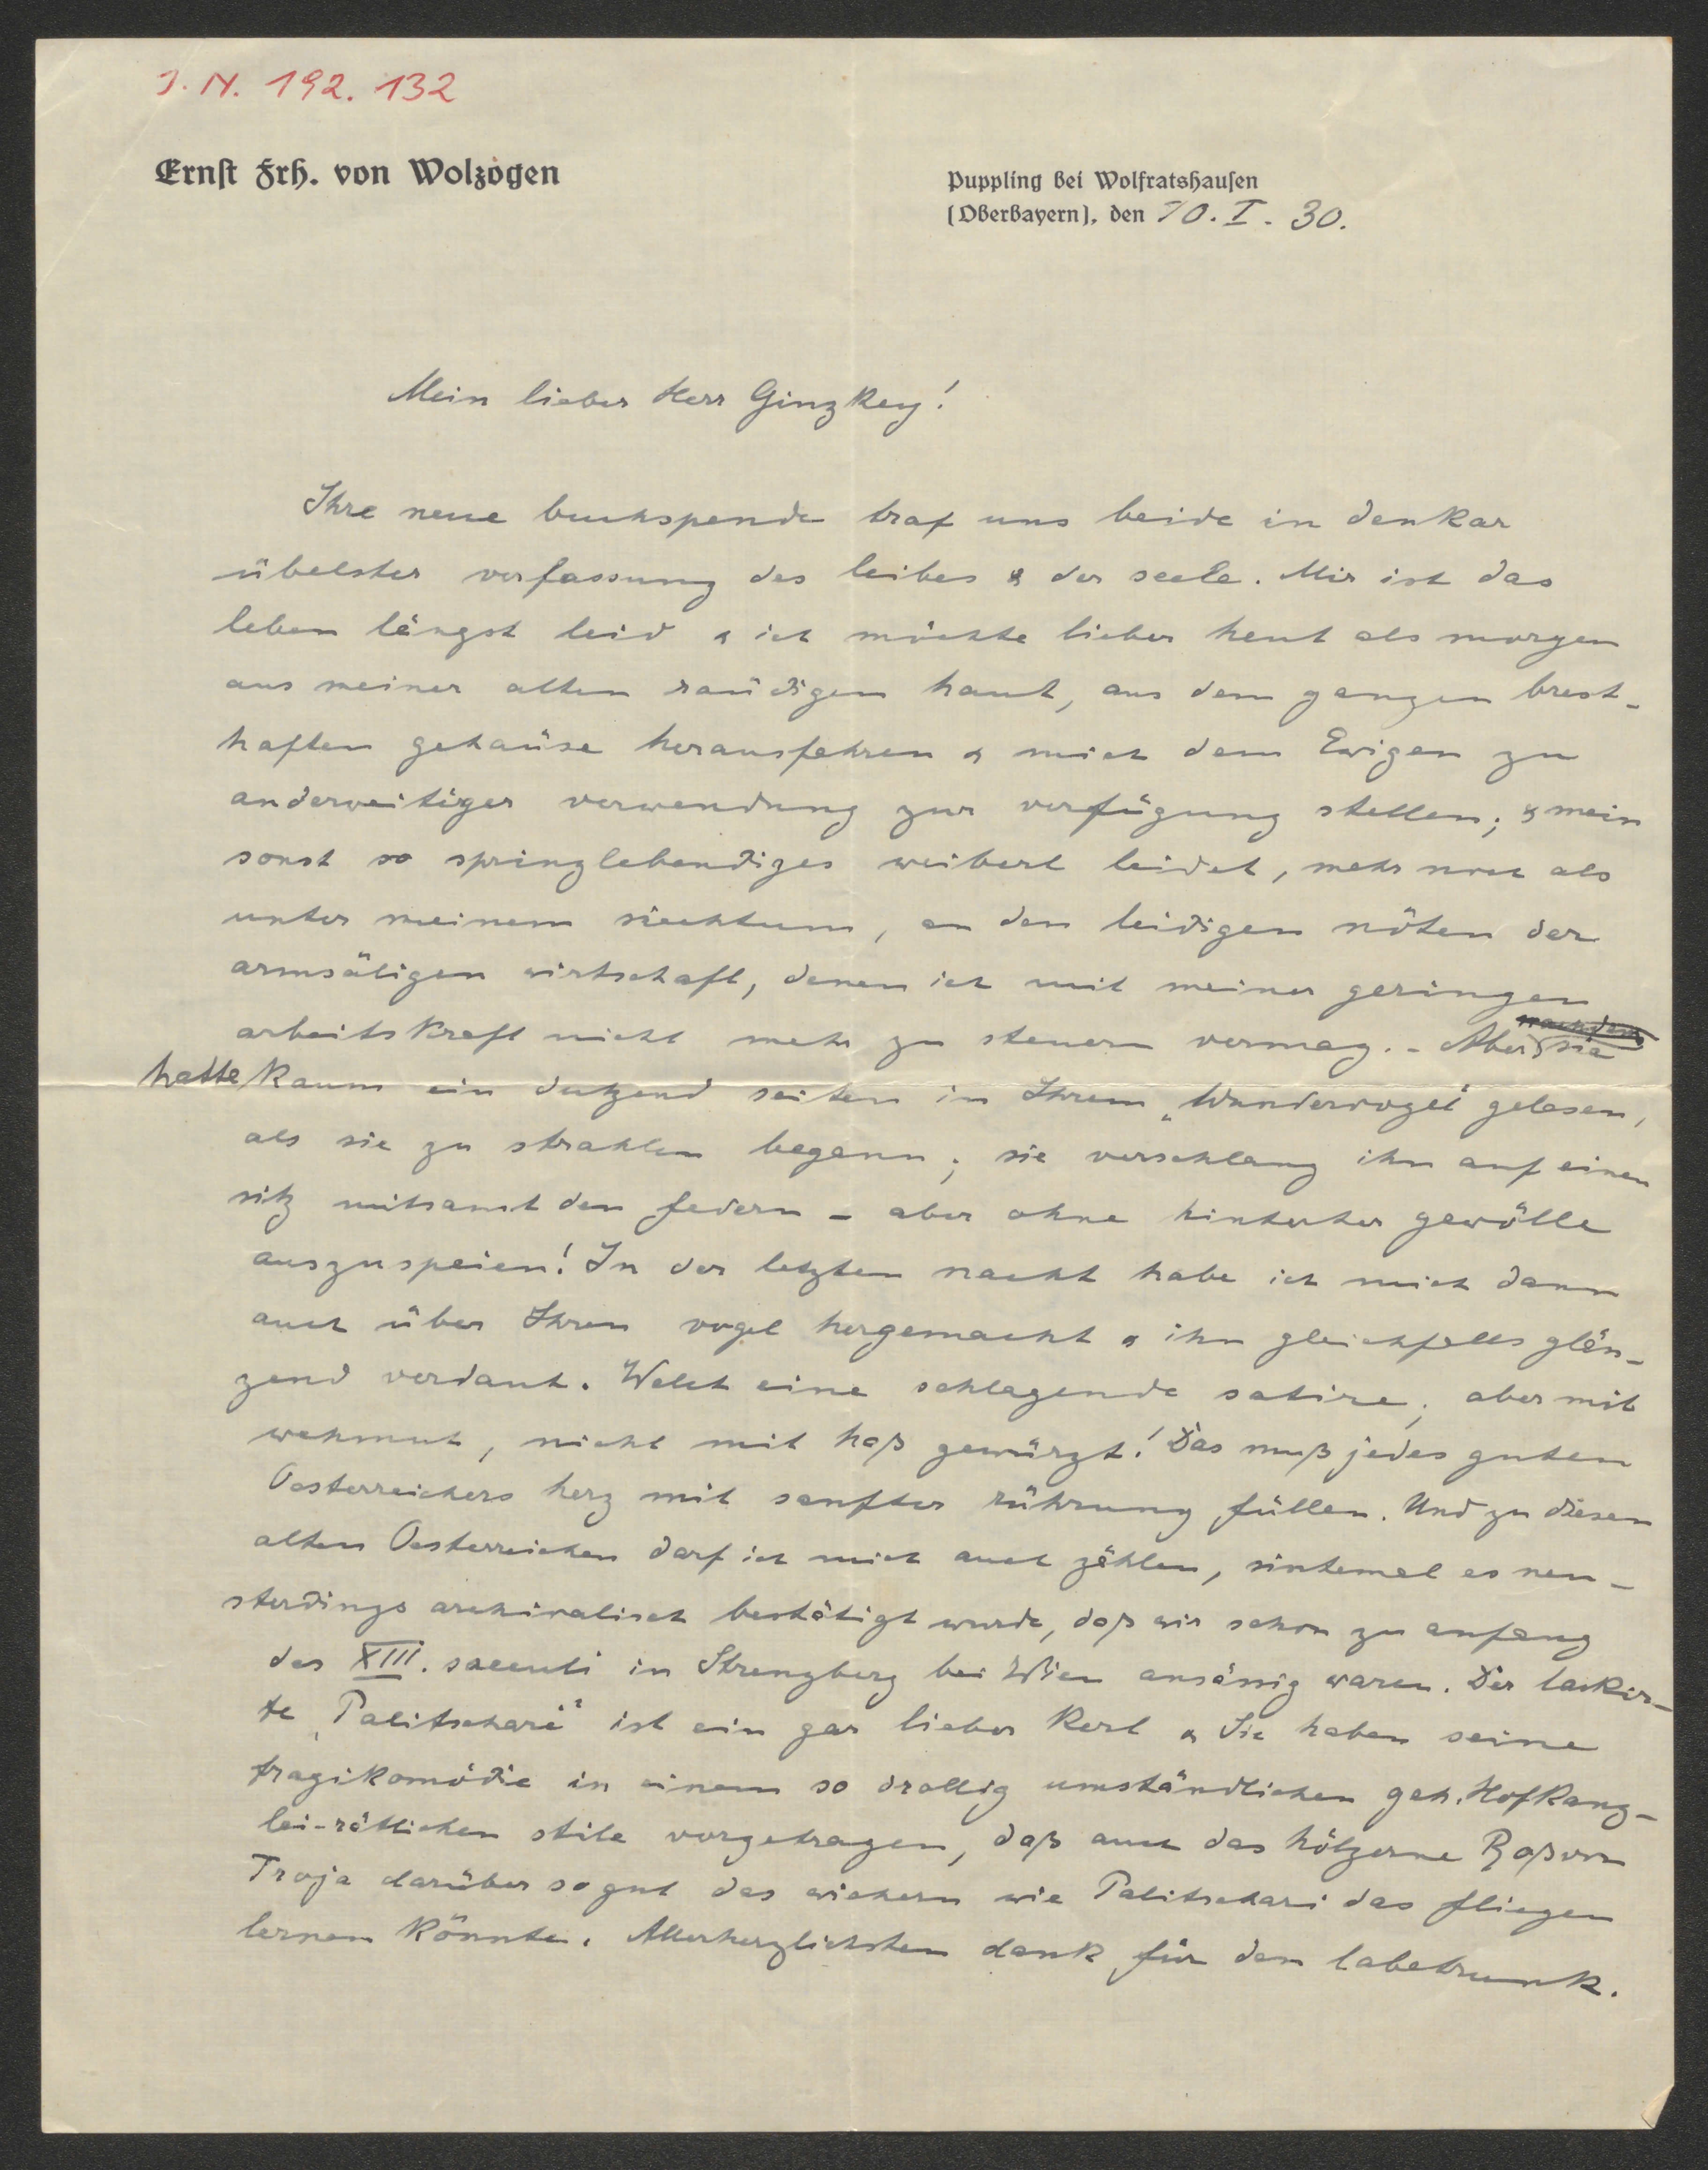 I. N. 192.132
Ernst Frh. von Wolzogen
Puppling bei Wolfratshausen
(Oberbayern), den 10. I. 30.
Mein lieber Herr Ginzkey!
Ihre neue buchspende traf uns beide in denkbar
übelster verfassung des leibes & der seele. Mir ist das
leben längst leid & ich möchte lieber heut als morgen
aus meiner alten räudigen haut, aus dem ganzen brest-
haften gehäuse herausfahren & mich dem Ewigen zu
anderweitiger verwendung zur verfügung stellen; & mein
sonst so springlebendiges weiberl leidet, mehr noch als
unter meinem siechtum, an den leidigen nöten der
armsäligen wirtschaft, denen ich mit meiner geringen
arbeitskraft nicht mehr zu steuern vermag. - Aber sie
hatte kaum ein dutzend seiten in Ihrem „Wundervogel" gelesen,
als sie zu strahlen begann; sie verschlang ihn auf einen
sitz mitsamt den federn - aber ohne hinterher gewölle
auszuspeien! In der letzten nacht habe ich mich dann
auch über Ihren vogel hergemacht & ihn gleichfalls glän-
zend verdaut. Welch eine schlagende satire; aber mit
wehmut, nicht mit haß gewürzt! Das muß jedes guten
Oesterreichers herz mit sanfter rührung füllen. Und zu diesen
alten Oesterreichern darf ich mich auch zählen, sintemal es neu-
sterdings archivalisch bestätigt wurde, daß wir schon zu anfang
des XIII. saeculi in Strengberg bei Wien ansässig waren. Der lackir-
te „Palitschari" ist ein gar lieber kerl & Sie haben seine
tragikomödie in einem so drollig umständlichen geh. Hofkanz-
lei-rätlichen stile vorgetragen, daß auch das hölzerne Roß von
Troja darüber so gut das wiehern wie Palitschari das fliegen
lernen könnte. Allerherzlichsten dank für den labetrunk.